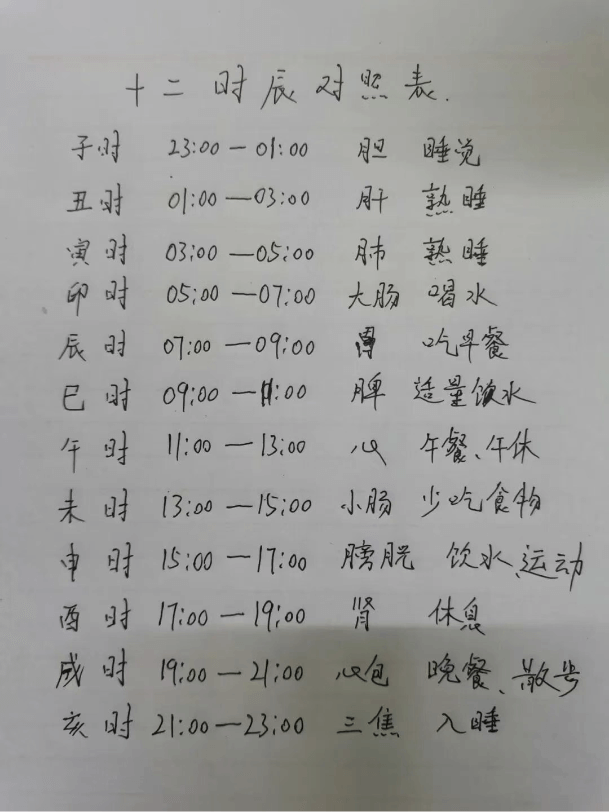 十二时辰对照表.
子时 23:00—01:00 胆 睡觉
丑时 01:00—03:00 肝 熟睡
寅时 03:00—05:00 肺 熟睡
卯时 05:00—07:00 大肠 喝水
辰时 07:00—09:00 胃 吃早餐
巳时 09:00—11:00 脾 适量饮水
午时 11:00—13:00 心 午餐、午休
未时 13:00—15:00 小肠 少吃食物
申时 15:00—17:00 膀胱 饮水、运动
酉时 17:00—19:00 肾 休息
戌时 19:00—21:00 心包 晚餐、散步
亥时 21:00—23:00 三焦 入睡